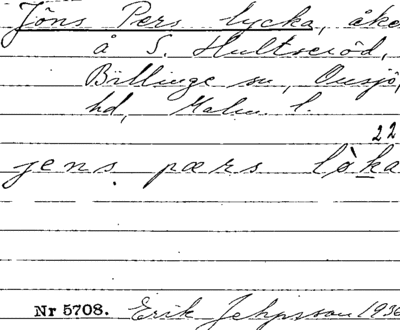 Jöns Pers lycka, åke
å S. Hultseröd,
Billinge sn, Onsjö,
hd, Malm. l.
22
jens pærs lỳka
Nr 5708. Erik Jehpsson 1936